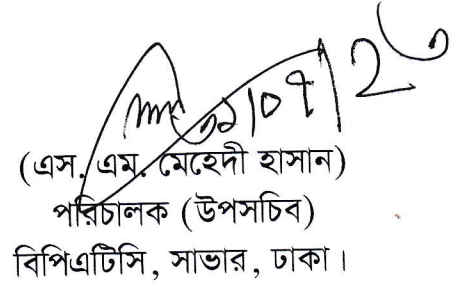 ৩১|০৭|২৩
(এস. এম. মেহেদী হাসান)
পরিচালক (উপসচিব)
বিপিএটিসি, সাভার, ঢাকা।